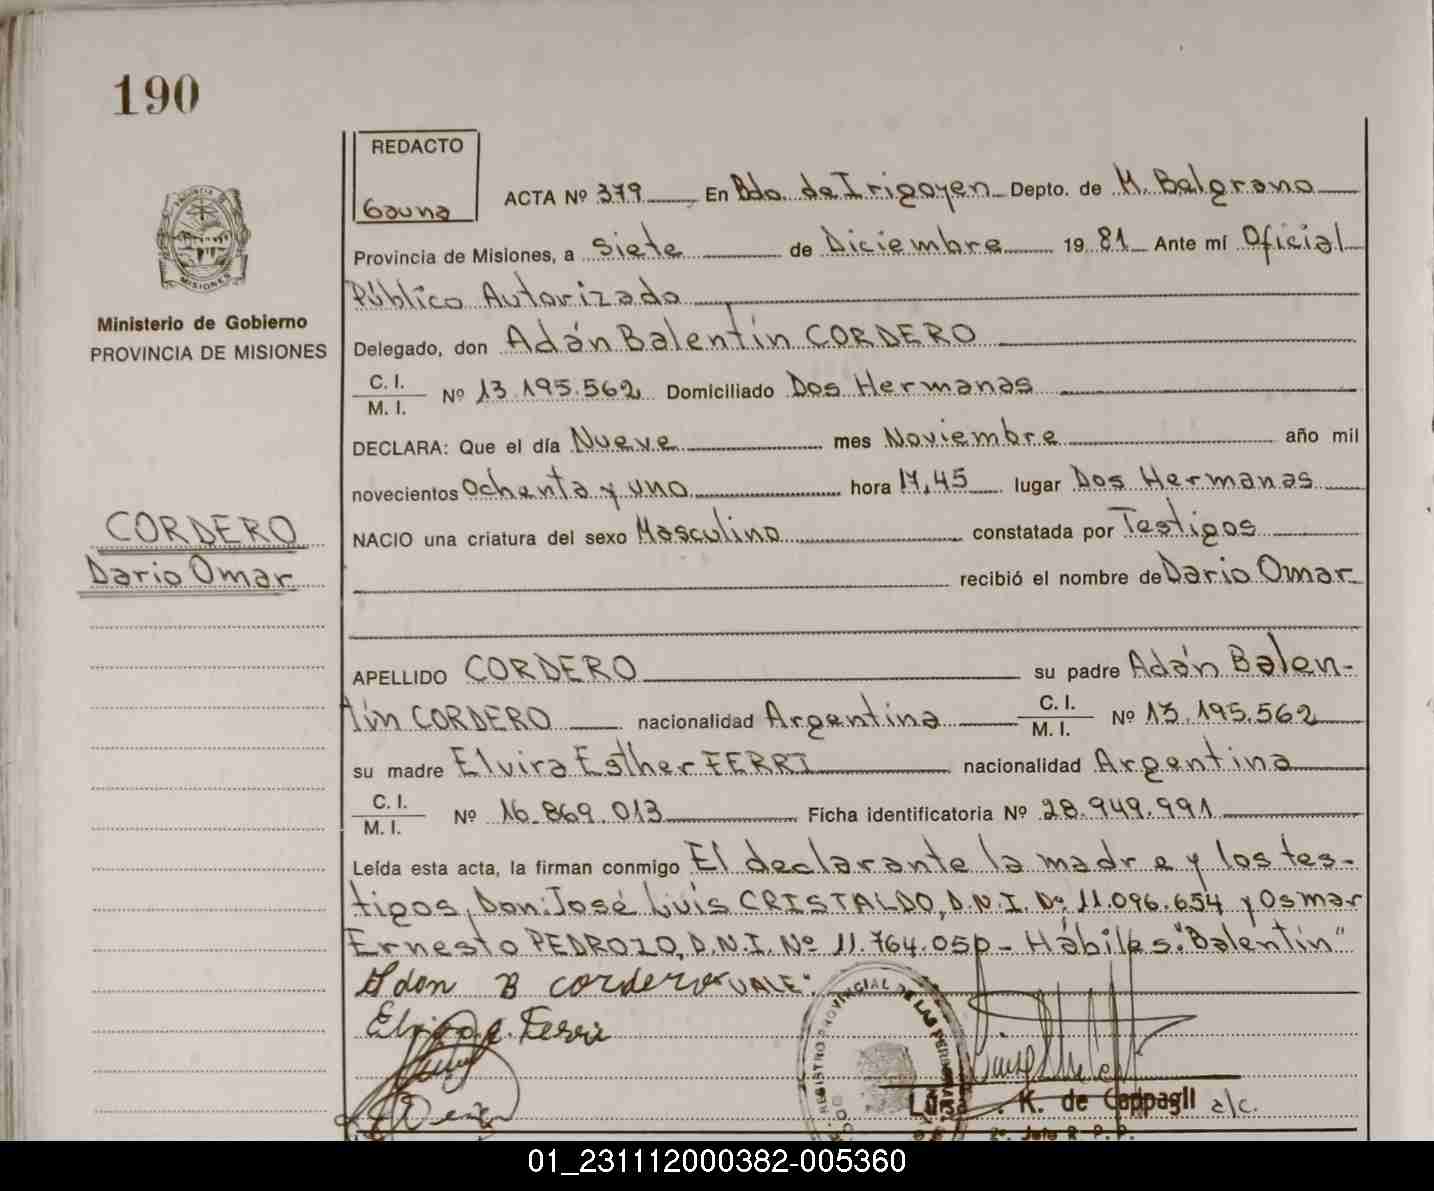 190
REDACTO
Gauna
ACTA Nº 379 En Bdo. de Irigoyen Depto. de M. Belgrano
Provincia de Misiones, a Siete de Diciembre 19 81 Ante mí Oficial
Público Autorizado
MISIONES
Ministerio de Gobierno
PROVINCIA DE MISIONES
Delegado, don Adán Balentín CORDERO
C. I.
M. I.
Nº 13.195.562 Domiciliado Dos Hermanas
DECLARA: Que el día Nueve mes Noviembre año mil
novecientos Ochenta y uno hora 17,45 lugar Dos Hermanas
CORDERO
Dario Omar
NACIO una criatura del sexo Masculino constatada por Testigos
recibió el nombre de Dario Omar
APELLIDO CORDERO su padre Adán Balen-
tín CORDERO nacionalidad Argentina C. I. M. I. Nº 13.195.562
su madre Elvira Esther FERRI nacionalidad Argentina
C. I.
M. I.
Nº 16.869.013 Ficha identificatoria Nº 28.949.991
Leída esta acta, la firman conmigo El declarante la madre y los tes-
tigos, Don: José Luis CRISTALDO, D.N.I. Nº 11.096.654 y Osmar
Ernesto PEDROZO, D.N.I. Nº 11.764.05 - Hábiles. "Balentín"
Adan B cordero VALE:
Ferri
REGISTRO PROVINCIAL DE LAS PERSONAS
K. de Cappagli a/c.
2º Jefe R. P. P.
01_231112000382-005360